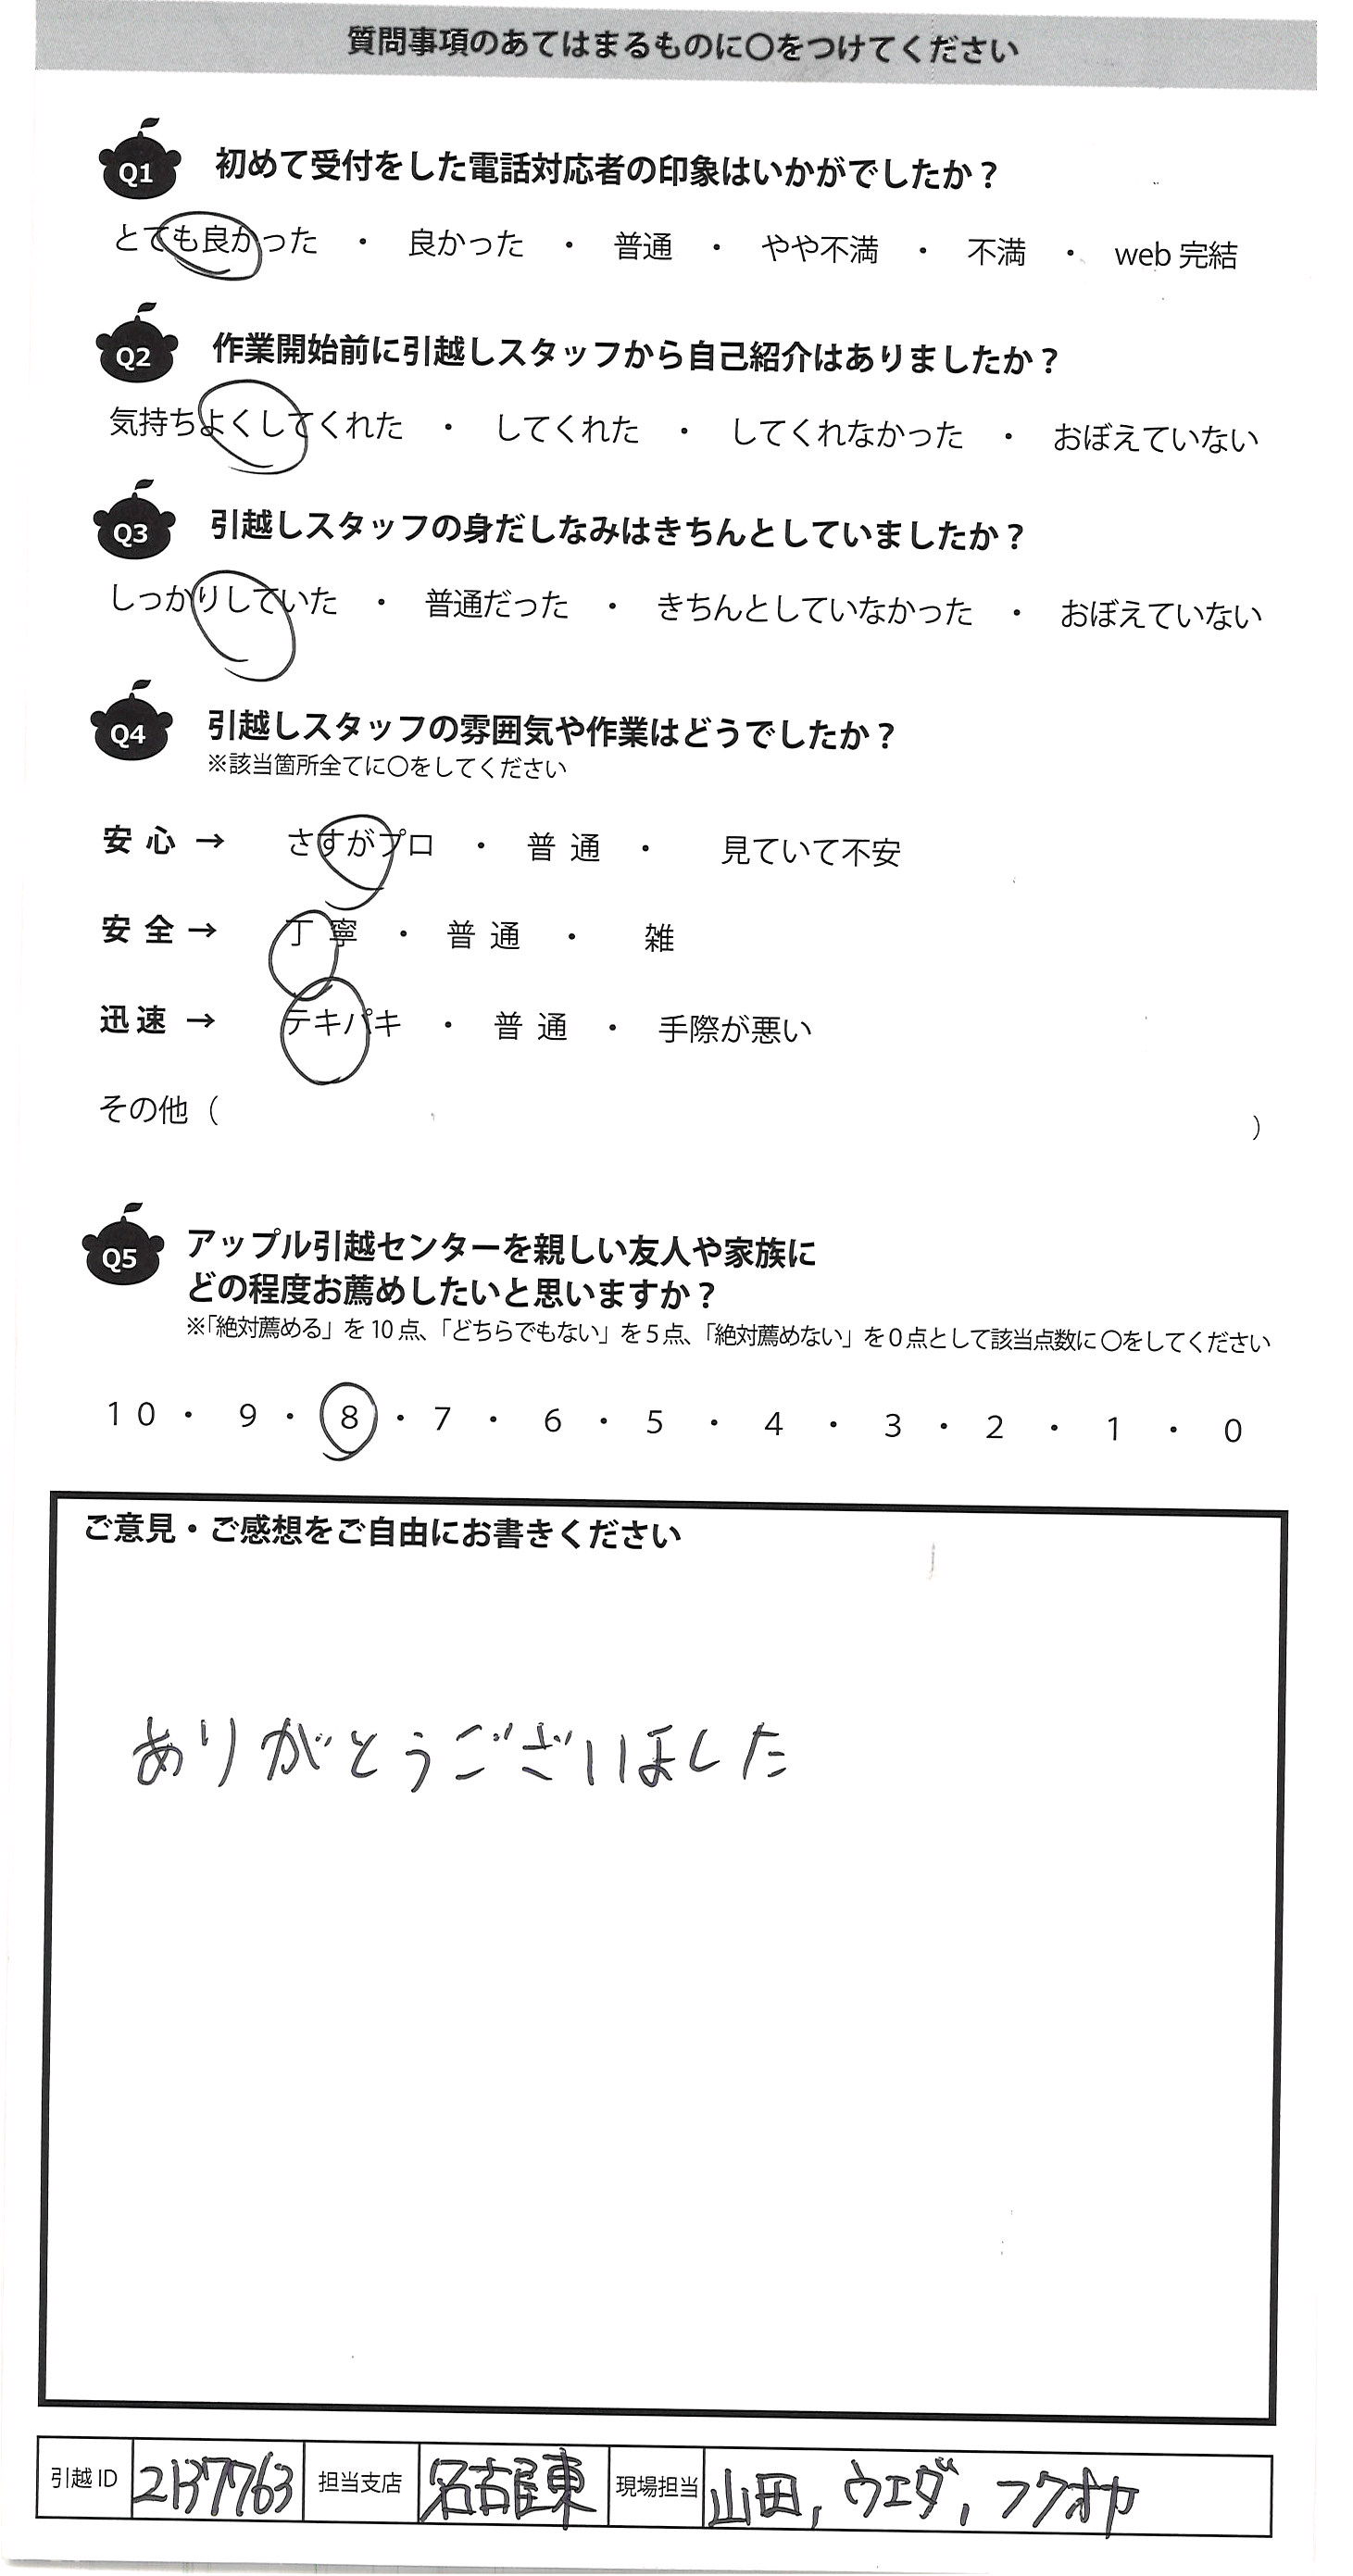 質問事項のあてはまるものに〇をつけてください
Q1 初めて受付をした電話対応者の印象はいかがでしたか？
とても良かった ・ 良かった ・ 普通 ・ やや不満 ・ 不満 ・ web 完結
Q2 作業開始前に引越しスタッフから自己紹介はありましたか？
気持ちよくしてくれた ・ してくれた ・ してくれなかった ・ おぼえていない
Q3 引越しスタッフの身だしなみはきちんとしていましたか？
しっかりしていた ・ 普通だった ・ きちんとしていなかった ・ おぼえていない
Q4 引越しスタッフの雰囲気や作業はどうでしたか？
※該当箇所全てに〇をしてください
安 心 → さすがプロ ・ 普 通 ・ 見ていて不安
安 全 → 丁 寧 ・ 普 通 ・ 雑
迅 速 → テキパキ ・ 普 通 ・ 手際が悪い
その他（ ）
Q5 アップル引越センターを親しい友人や家族に
どの程度お薦めしたいと思いますか？
※「絶対薦める」を 10 点、「どちらでもない」を 5 点、「絶対薦めない」を 0 点として該当点数に 〇をしてください
10 ・ 9 ・ 8 ・ 7 ・ 6 ・ 5 ・ 4 ・ 3 ・ 2 ・ 1 ・ 0
ご意見・ご感想をご自由にお書きください
ありがとうございました
引越 ID 2137763 担当支店 名古屋東 現場担当 山田, ウエダ, フクオカ